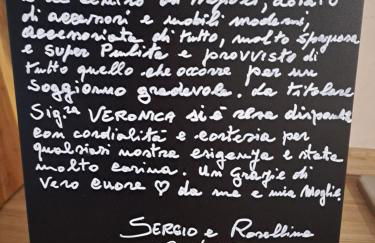 e al centro di Napoli, dotato
di accessori e mobili moderni,
accessoriata di tutto, molto spaziosa
e super Pulita e provvisto di
tutto quello che occorre per un
soggiorno gradevole. La titolare
Sig.ra VERONICA si è resa disponibile
con cordialità e cortesia per
qualsiasi nostra esigenza e stata
molto carina. Un Grazie di
vero cuore ♡ da me e mia Moglie.
SERGIO e Rosellina